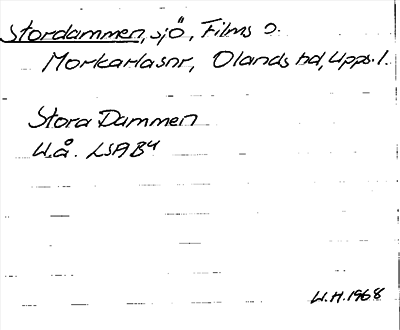 Stordammen, sjö, Films o.
Morkarlasnr, Olands hd, Upps. l.
Stora Dammen
U.å. LSA B4
W.H. 1968